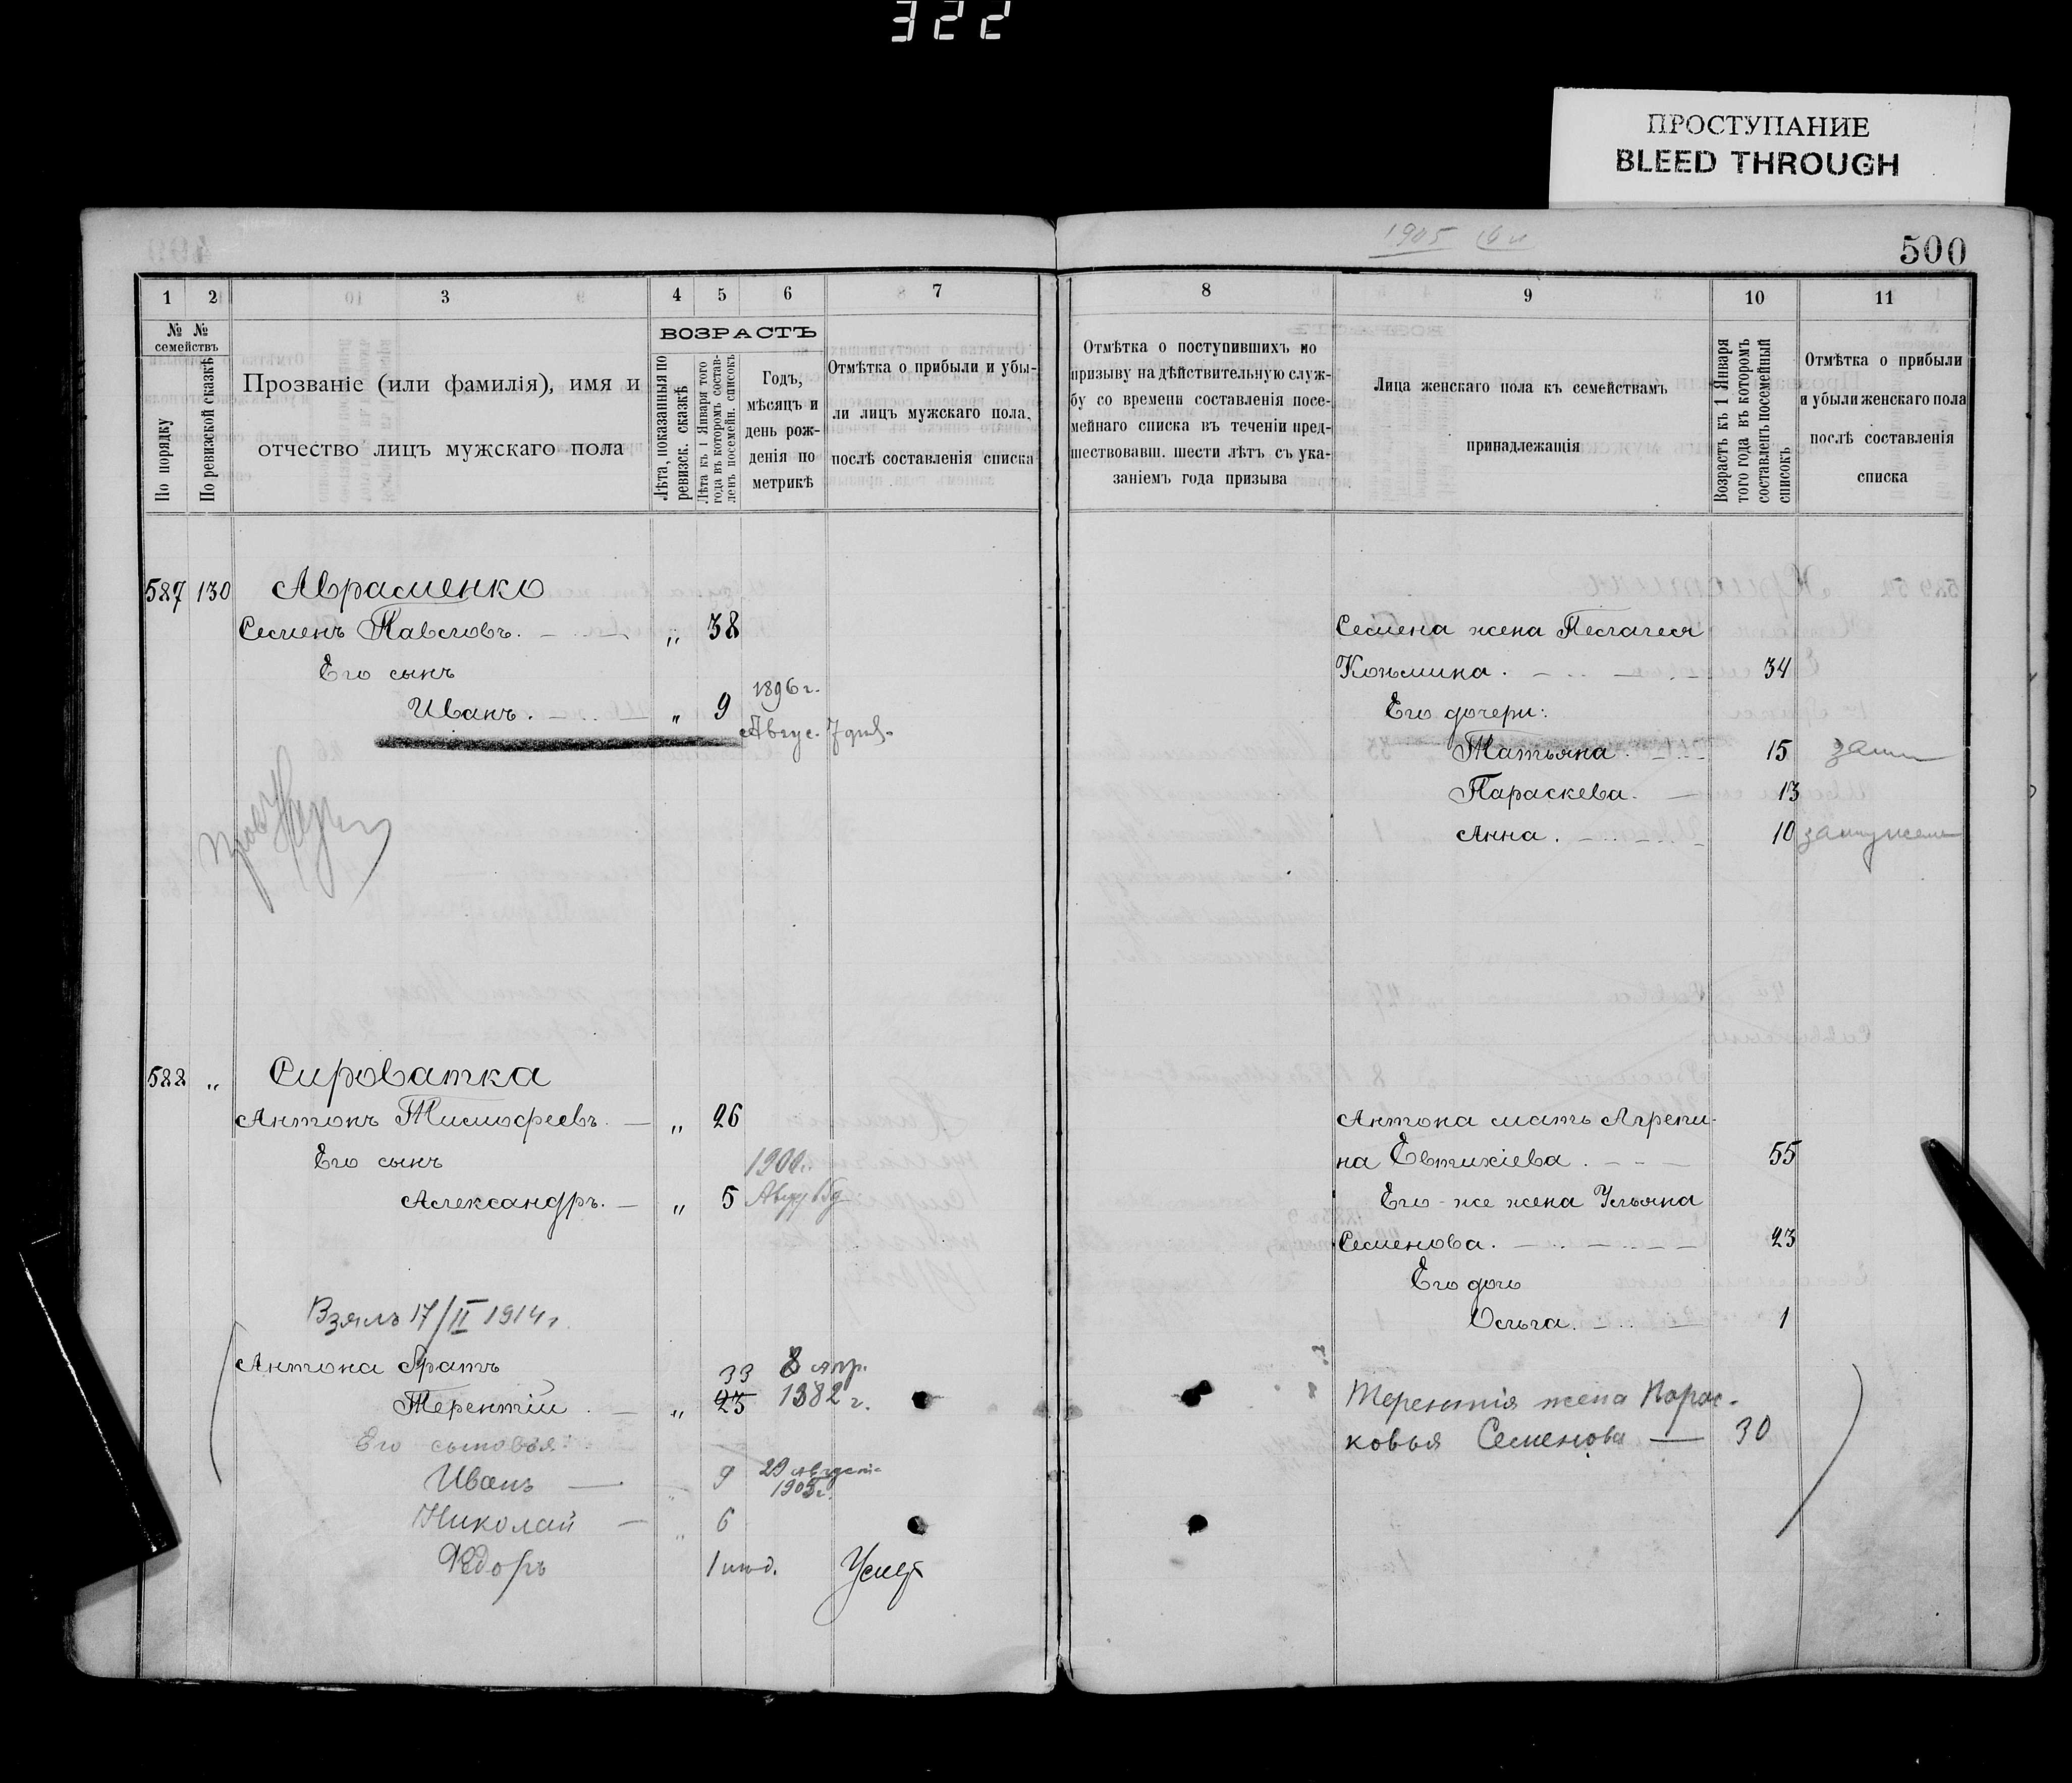 322
ПРОСТУПАНИЕ
BLEED THROUGH
1905
500
1 2 3 4 5 6 7
№ № семействъ
По порядку
По ревизской сказкѣ
Прозваніе (или фамилія), имя и
отчество лицъ мужскаго пола
ВОЗРАСТЪ
Лѣта, показанныя по
ревизск. сказкѣ
Лѣта къ 1 Января того
года въ которомъ состав-
ленъ посемейн. списокъ
Годъ,
мѣсяцъ и
день рож-
денія по
метрикѣ
Отмѣтка о прибыли и убы-
ли лицъ мужскаго пола,
послѣ составленія списка
587 130 Авраменко
Семенъ Павловъ. „ 38
Его сынъ
Иванъ. „ 9 1896 г.
Авгус. 7 дня.
588 „ Сироватка
Антонъ Тимофеевъ. „ 26
Его сынъ 1900г.
Александръ. „ 5
Взялъ 17/II 1914 г.
Антона братъ 33 8 апр.
Терентій „ 25 1882 г.
Его сыновья:
Иванъ „ 9 29 августа
1905г.
Николай „ 6
Федоръ 1 Умер
8 9 10 11
Отмѣтка о поступившихъ по
призыву на дѣйствительную служ-
бу со времени составленія посе-
мейнаго списка въ теченіи пред-
шествовавш. шести лѣтъ съ ука-
заніемъ года призыва
Лица женскаго пола къ семействамъ
принадлежащія
Возрастъ къ 1 Января
того года въ которомъ
составленъ посемейный
списокъ
Отмѣтка о прибыли
и убыли женскаго пола
послѣ составленія
списка
Семена жена Пелагея
Козьмина. 34
Его дочери:
Татьяна. 15 зам
Параскева. 13
Анна. 10 замужем
Антона мать Агрепи-
на Евтихіева. 55
Его-же жена Ульяна
Семенова. 23
Его дочь
Ольга. 1
Терентія жена Парас-
ковья Семенова 30